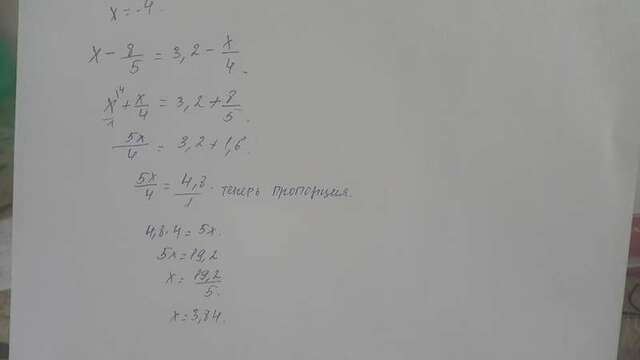 x = -4.
x - 8/5 = 3,2 - x/4.
x/1 ^4 + x/4 = 3,2 + 8/5.
5x/4 = 3,2 + 1,6.
5x/4 = 4,8/1. теперь пропорция.
4,8·4 = 5x.
5x = 19,2
x = 19,2/5.
x = 3,84.